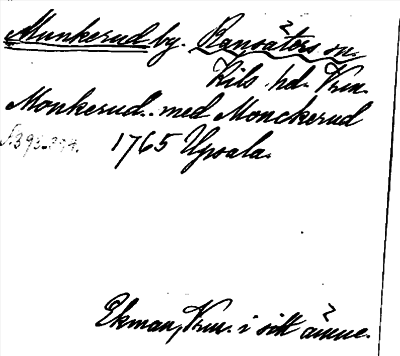 Munkerud by. Ransäters sn.
Kils hd. Vrm.
Monkerud.. med Monckerud
S. 393-394. 1765 Upsala.
Ekman, Vrm. i sitt ämne.